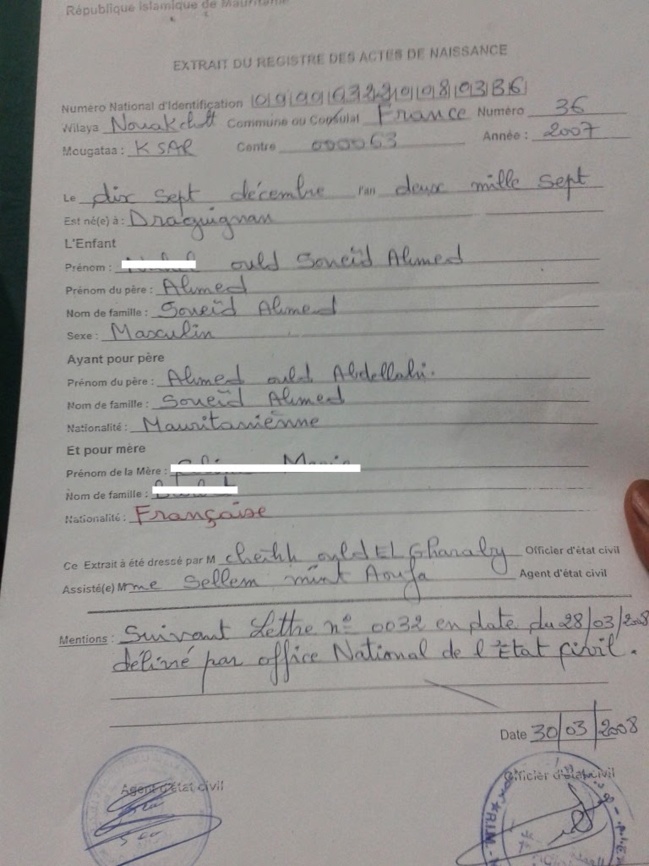 République Islamique de Mauritanie
EXTRAIT DU REGISTRE DES ACTES DE NAISSANCE
Numéro National d'Identification
Wilaya Nouakchott Commune ou Consulat France Numéro 36
Mougataa : KSAR Centre 000063 Année : 2007
Le dix sept décembre l'an deux mille sept
Est né(e) à : Draguignan
L'Enfant
Prénom : ould Soneïd Ahmed
Prénom du père : Ahmed
Nom de famille : Soneïd Ahmed
Sexe : Masculin
Ayant pour père
Prénom du père : Ahmed ould Abdellahi.
Nom de famille : Soneïd Ahmed
Nationalité : Mauritanienne
Et pour mère
Prénom de la Mère :
Nom de famille :
Nationalité : Française
Ce Extrait à été dressé par M cheikh ould EL Gharaby Officier d'état civil
Assisté(e) Mme Sellem mint Aoufa Agent d'état civil
Mentions : Suivant Lettre n° 0032 en date du 28/03/2008
délivré par office National de l'Etat Civil.
Date 30/03/2008
Agent d'état civil
Officier d'état civil